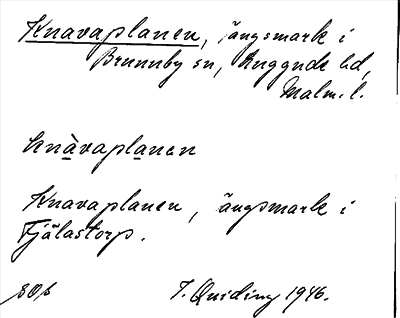 Knavaplanen, ängsmark i
Brunnby sn, Luggude hd,
Malm. l.
knàvaplanen
Knavaplanen, ängsmark i
Fjälastorp.
T. Quiding 1946.